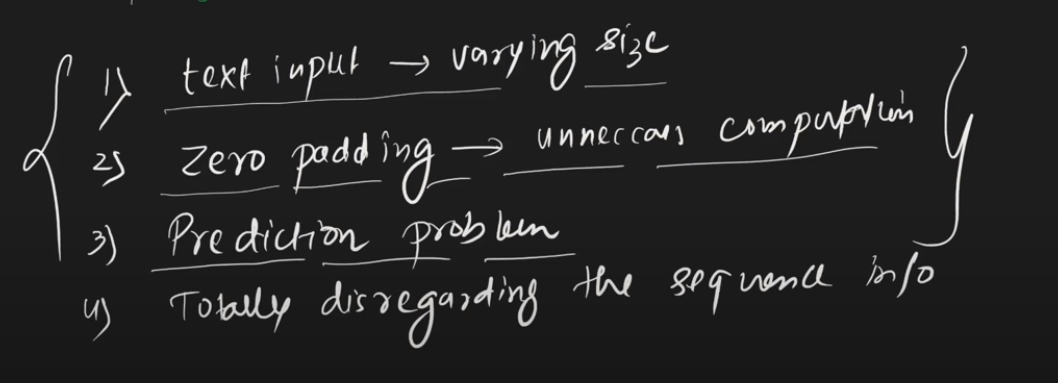 1) text input → varying size
2) zero padding → unneccary computation
3) Prediction problem
4) Totally disregarding the sequence info